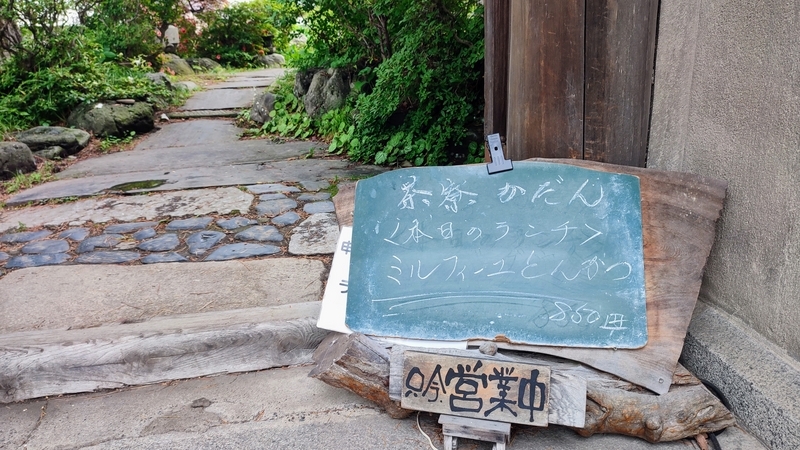 茶寮 かだん
<本日のランチ>
ミルフィーユとんかつ
860円
只今営業中